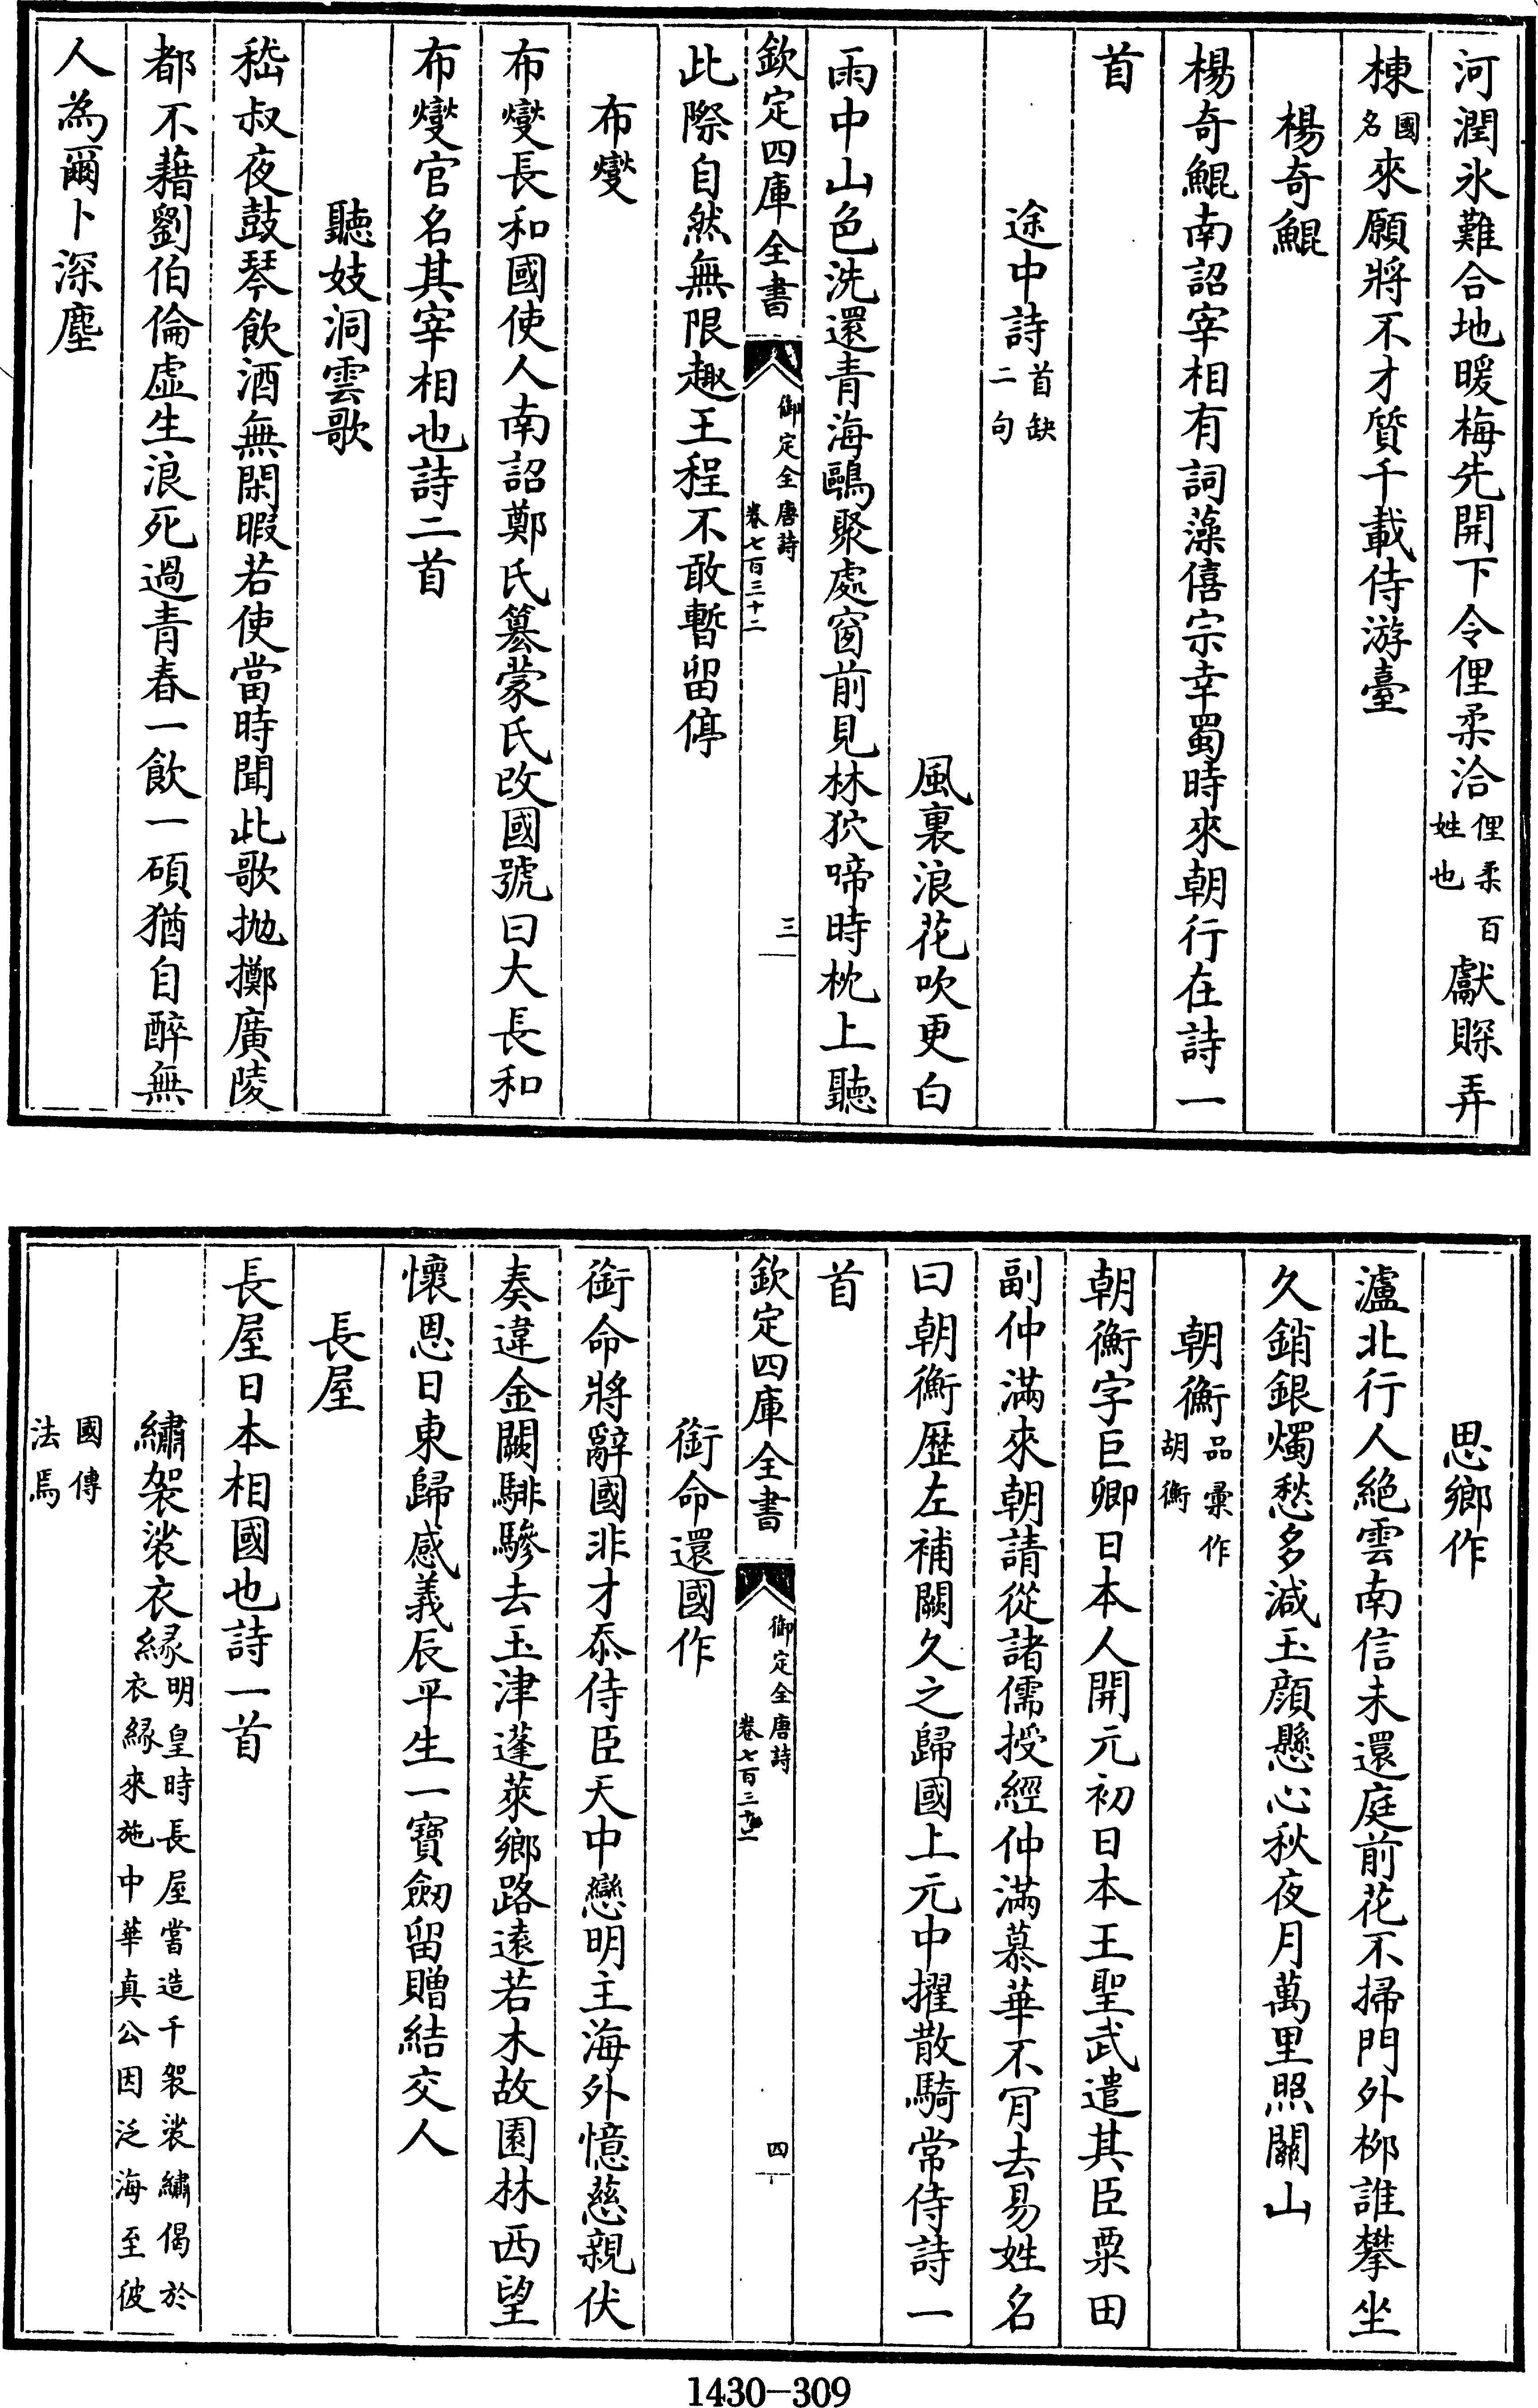 河潤氷難合地暖梅先開下令俚柔洽俚柔百姓也獻賝弄
棟國名來願將不才質千載侍游臺
楊奇鯤
楊奇鯤南詔宰相有詞藻僖宗幸蜀時來朝行在詩一
首
途中詩首缺二句
風裏浪花吹更白
雨中山色洗還青海鷗聚處窗前見林狖啼時枕上聽
欽定四庫全書
御定全唐詩
卷七百三十二
三
此際自然無限趣王程不敢暫留停
布燮
布燮長和國使人南詔鄭氏簒蒙氏改國號曰大長和
布燮官名其宰相也詩二首
聽妓洞雲歌
嵇叔夜鼓琴飲酒無閑暇若使當時聞此歌抛擲廣陵
都不藉劉伯倫虚生浪死過青春一飲一碩猶自醉無
人為爾卜深塵
思鄉作
瀘北行人絶雲南信未還庭前花不掃門外栁誰攀坐
久銷銀燭愁多減玉顔懸心秋夜月萬里照關山
朝衡品彙作胡衡
朝衡字巨卿日本人開元初日本王聖武遣其臣粟田
副仲滿來朝請從諸儒授經仲滿慕華不肎去易姓名
曰朝衡歴左補闕久之歸國上元中擢散騎常侍詩一
首
欽定四庫全書
御定全唐詩
卷七百三十二
四
銜命還國作
銜命將辭國非才忝侍臣天中戀明主海外憶慈親伏
奏違金闕騑驂去玉津蓬萊鄉路逺若木故園林西望
懷恩日東歸感義辰平生一寶劒留贈結交人
長屋
長屋日本相國也詩一首
繡袈裟衣縁明皇時長屋嘗造千袈裟繡偈於衣縁來施中華真公因泛海至彼
國傳法焉
1430-309